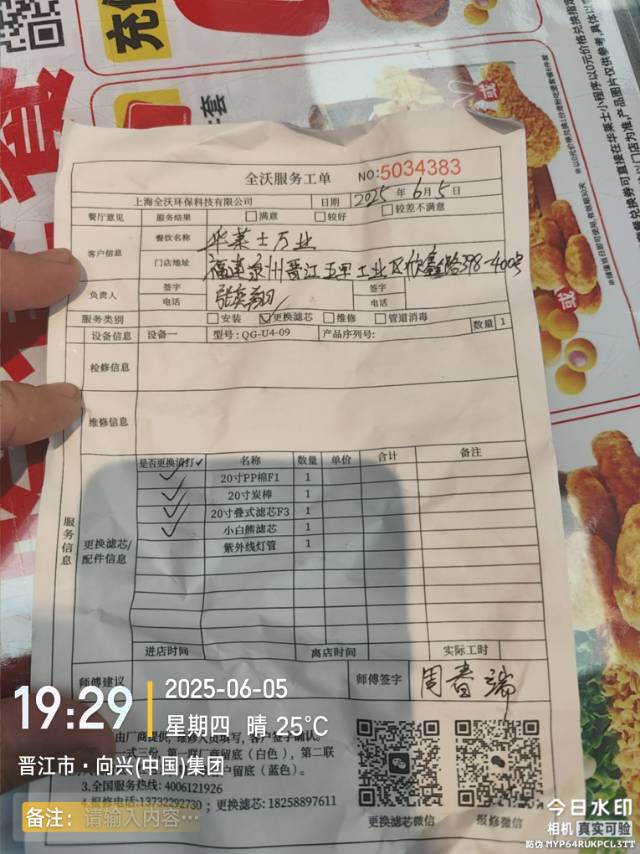 充
套
或
全沃服务工单
NO:5034383
上海全沃环保科技有限公司
日期 2025年6月5日
餐厅意见 服务结果 满意 较好 较差不满意
客户信息 餐饮名称 华莱士万业
门店地址 福建泉州晋江五里工业区欣鑫路398-400号
负责人 签字 签字
电话 电话
服务类别 安装 更换滤芯 维修 管道消毒
数量 1
设备信息 设备一 型号:QG-U4-09 产品序列号:
检修信息
维修信息
服务信息
更换滤芯/配件信息
是否更换请打✓ 名称 数量 单价 合计 备注
✓ 20寸PP棉F1 1
✓ 20寸炭棒 1
✓ 20寸叠式滤芯F3 1
✓ 小白熊滤芯 1
紫外线灯管 1
进店时间 离店时间 实际工时
师傅建议 师傅签字 周春端
由厂商提供
一式三份,第一联厂商留底(白色),第二联
户留底(蓝色)。
3.全国服务热线:4006121926
4.报修电话:13732292730;更换滤芯:18258897611
更换滤芯微信 报修微信
19:29
2025-06-05
星期四 晴 25℃
晋江市·向兴(中国)集团
备注: 请输入内容…
今日水印
相机 真实可验
防伪 MYP64RUKPCL3TT